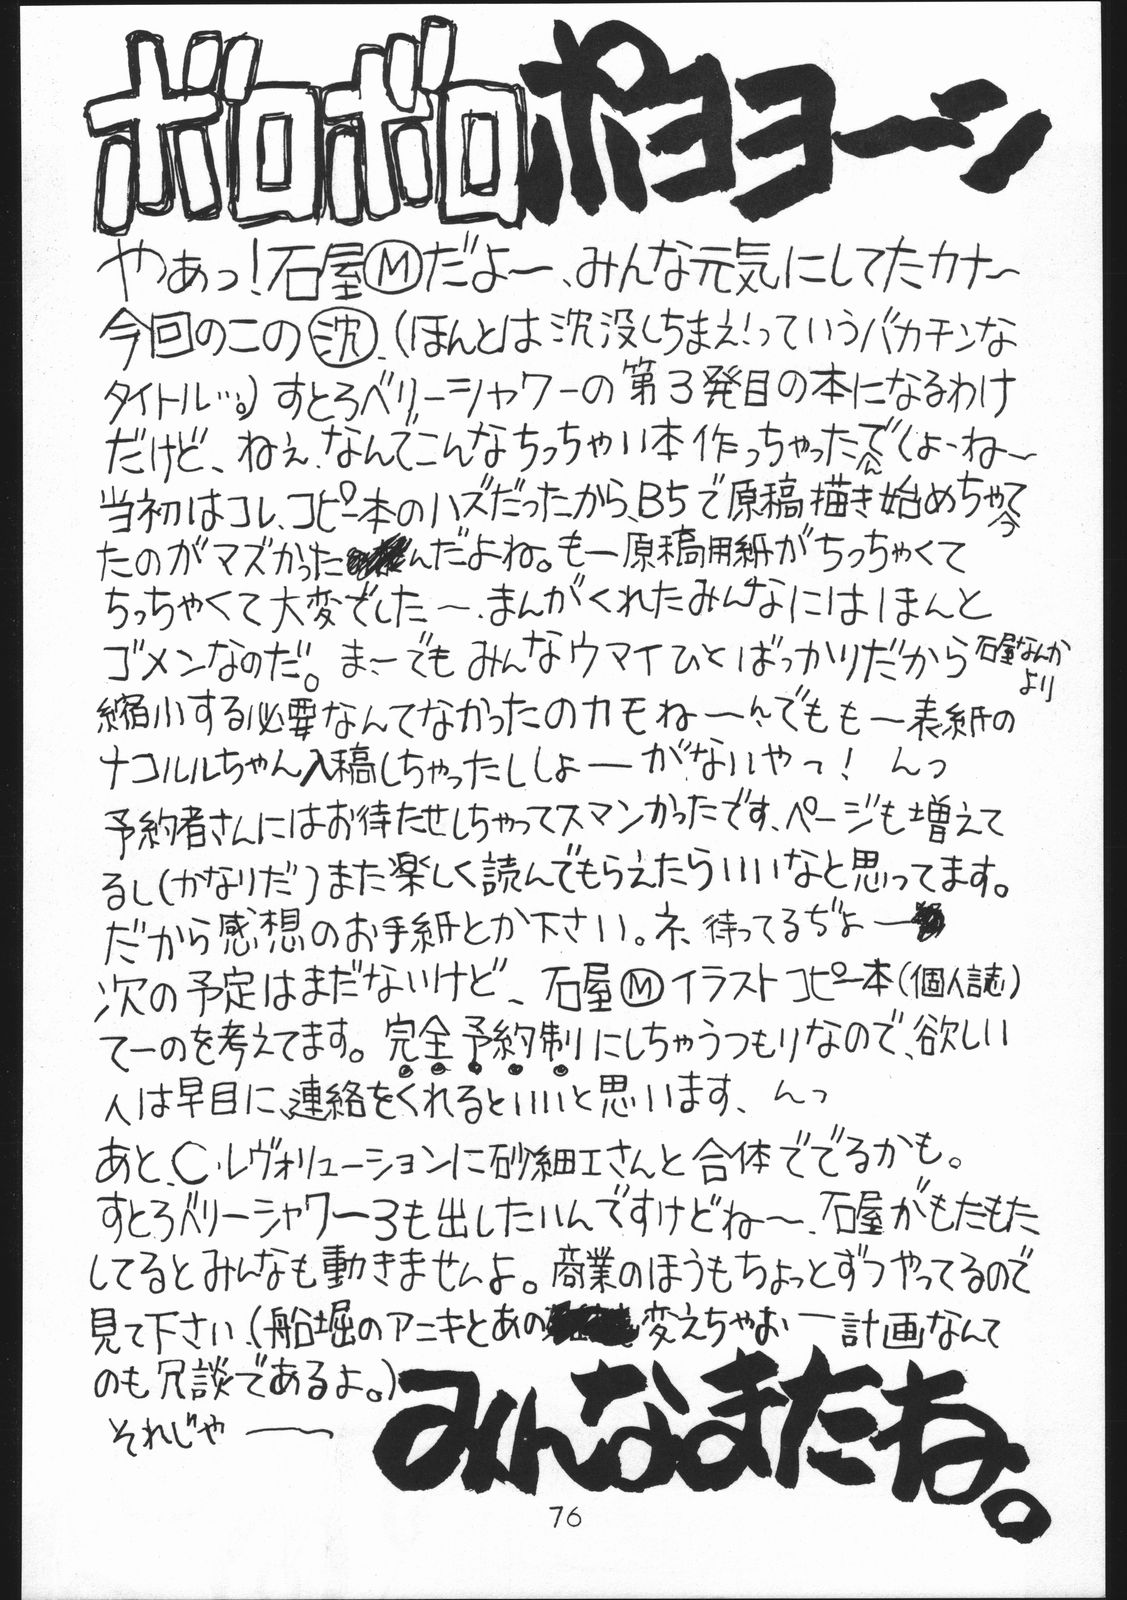 ボロボロポヨヨーン
やぁっ!石屋Ⓜだよ〜、みんな元気にしてたカナ〜
今回のこの㊟沈、(ほんとは沈没しちまえ!っていうバカチンな
タイトル…。)すとろベリーシャワーの第3発目の本になるわけ
だけど、ねぇ、なんでこんなちっちゃい本作っちゃったんでしょーね〜
当初はコレ、コピー本のハズだったから、B5で原稿描き始めちゃって
たのがマズかった んだよね。もー原稿用紙がちっちゃくて
ちっちゃくて大変でした〜、まんがくれたみんなにはほんと
ゴメンなのだ。ま〜でもみんなウマイひとばっかりだから石屋なんかより
縮小する必要なんてなかったのカモね〜んでもも一表紙の
ナコルルちゃん入稿しちゃったししょーがないやっ! んっ
予約者さんにはお待たせしちゃってスマンかったです、ページも増えて
るし(かなりだ)また楽しく読んでもらえたらいいなと思ってます。
だから感想のお手紙とか下さい。ネ、待ってるぢょー
次の予定はまだないけど、石屋Ⓜイラストコピー本(個人誌)
てーのを考えてます。完全予約制にしちゃうつもりなので、欲しい
人は早目に、連絡をくれるといいと思います、んっ
あと、C・レヴォリューションに砂細工さんと合体ででるかも。
すとろベリーシャワー3も出したいんですけどね〜、石屋がもたもた
してるとみんなも動きませんよ。商業のほうもちょっとずつやってるので
見て下さい、(船堀のアニキとあの 変えちゃおー計画なんて
のも冗談であるよ。)
それじゃ〜
みんなまたね。
76